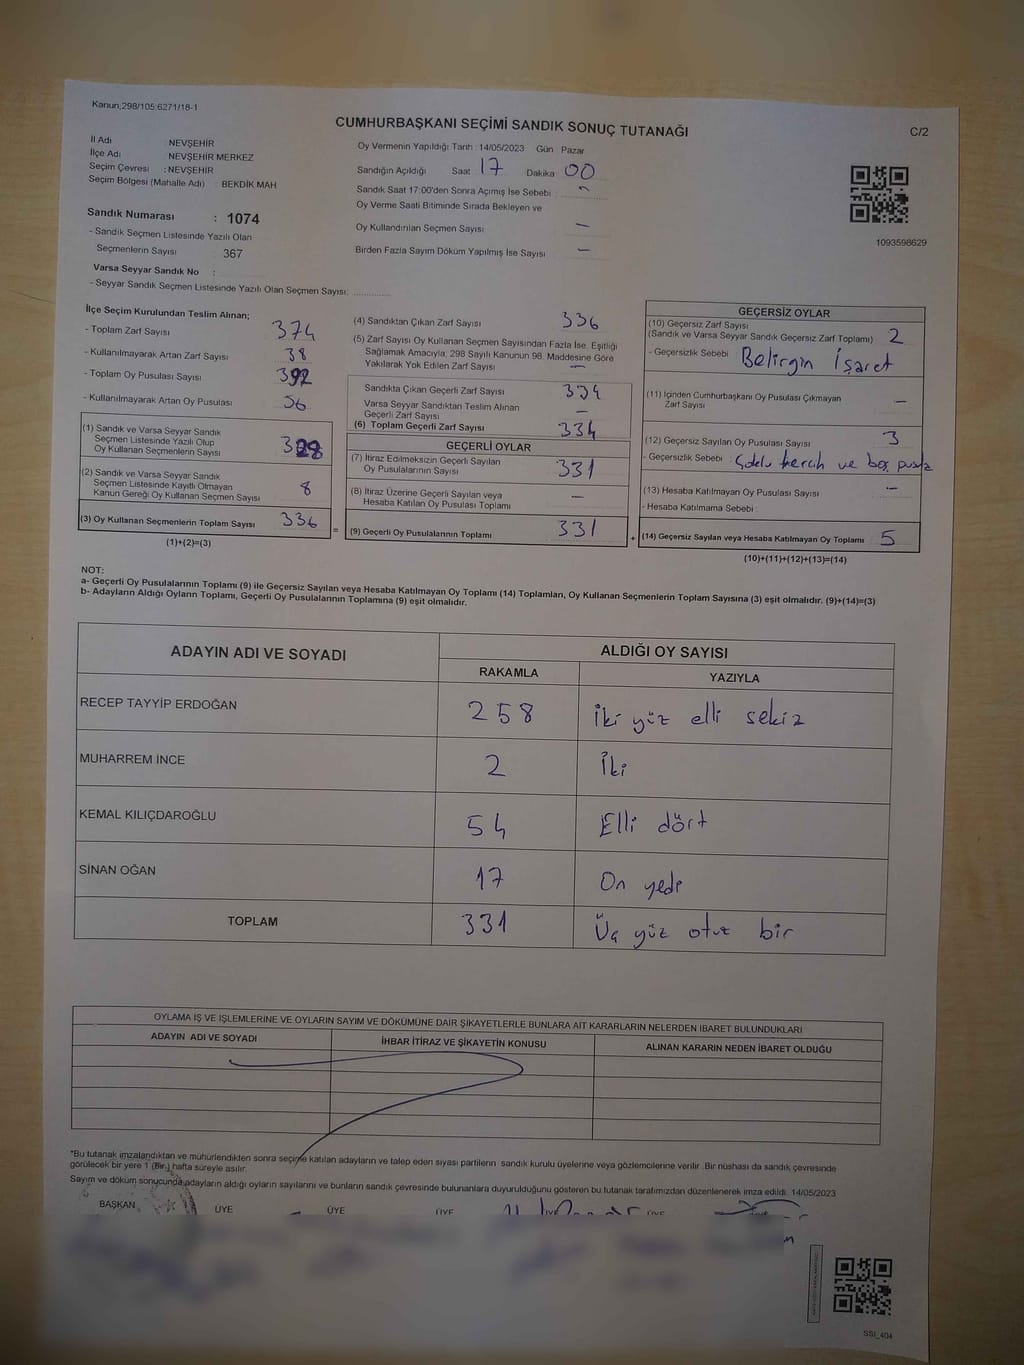 Kanun;298/105;6271/18-1
CUMHURBAŞKANI SEÇİMİ SANDIK SONUÇ TUTANAĞI
C/2
İl Adı NEVŞEHİR
İlçe Adı NEVŞEHİR MERKEZ
Seçim Çevresi : NEVŞEHİR
Seçim Bölgesi (Mahalle Adı) : BEKDİK MAH
Sandık Numarası : 1074
- Sandık Seçmen Listesinde Yazılı Olan
Seçmenlerin Sayısı 367
Varsa Seyyar Sandık No :
- Seyyar Sandık Seçmen Listesinde Yazılı Olan Seçmen Sayısı:
Oy Vermenin Yapıldığı Tarih :14/05/2023 Gün Pazar
Sandığın Açıldığı Saat 17 Dakika 00
Sandık Saat 17:00'den Sonra Açımış İse Sebebi :
Oy Verme Saati Bitiminde Sırada Bekleyen ve
Oy Kullandırılan Seçmen Sayısı —
Birden Fazla Sayım Döküm Yapılmış İse Sayısı —
1093598629
İlçe Seçim Kurulundan Teslim Alınan;
- Toplam Zarf Sayısı 374
- Kullanılmayarak Artan Zarf Sayısı 38
- Toplam Oy Pusulası Sayısı 392
- Kullanılmayarak Artan Oy Pusulası 56
(1) Sandık ve Varsa Seyyar Sandık
Seçmen Listesinde Yazılı Olup
Oy Kullanan Seçmenlerin Sayısı 328
(2) Sandık ve Varsa Seyyar Sandık
Seçmen Listesinde Kayıtlı Olmayan
Kanun Gereği Oy Kullanan Seçmen Sayısı 8
(3) Oy Kullanan Seçmenlerin Toplam Sayısı 336
(1)+(2)=(3)
(4) Sandıktan Çıkan Zarf Sayısı 336
(5) Zarf Sayısı Oy Kullanan Seçmen Sayısından Fazla İse, Eşitliği
Sağlamak Amacıyla, 298 Sayılı Kanunun 98. Maddesine Göre
Yakılarak Yok Edilen Zarf Sayısı —
Sandıkta Çıkan Geçerli Zarf Sayısı 334
Varsa Seyyar Sandıktan Teslim Alınan
Geçerli Zarf Sayısı —
(6) Toplam Geçerli Zarf Sayısı 334
GEÇERLİ OYLAR
(7) İtiraz Edilmeksizin Geçerli Sayılan
Oy Pusulalarının Sayısı 331
(8) İtiraz Üzerine Geçerli Sayılan veya
Hesaba Katılan Oy Pusulası Toplamı —
= (9) Geçerli Oy Pusulalarının Toplamı 331
GEÇERSİZ OYLAR
(10) Geçersiz Zarf Sayısı
(Sandık ve Varsa Seyyar Sandık Geçersiz Zarf Toplamı) 2
- Geçersizlik Sebebi : Belirgin İşaret
(11) İçinden Cumhurbaşkanı Oy Pusulası Çıkmayan
Zarf Sayısı —
(12) Geçersiz Sayılan Oy Pusulası Sayısı 3
- Geçersizlik Sebebi : tercih ve boş pusula
(13) Hesaba Katılmayan Oy Pusulası Sayısı —
- Hesaba Katılmama Sebebi :
+ (14) Geçersiz Sayılan veya Hesaba Katılmayan Oy Toplamı 5
(10)+(11)+(12)+(13)=(14)
NOT:
a- Geçerli Oy Pusulalarının Toplamı (9) ile Geçersiz Sayılan veya Hesaba Katılmayan Oy Toplamı (14) Toplamları, Oy Kullanan Seçmenlerin Toplam Sayısına (3) eşit olmalıdır. (9)+(14)=(3)
b- Adayların Aldığı Oyların Toplamı, Geçerli Oy Pusulalarının Toplamına (9) eşit olmalıdır.
ADAYIN ADI VE SOYADI ALDIĞI OY SAYISI
RAKAMLA YAZIYLA
RECEP TAYYİP ERDOĞAN 258 İki yüz elli sekiz
MUHARREM İNCE 2 İki
KEMAL KILIÇDAROĞLU 54 Elli dört
SİNAN OĞAN 17 On yedi
TOPLAM 331 Üç yüz otuz bir
OYLAMA İŞ VE İŞLEMLERİNE VE OYLARIN SAYIM VE DÖKÜMÜNE DAİR ŞİKAYETLERLE BUNLARA AİT KARARLARIN NELERDEN İBARET BULUNDUKLARI
ADAYIN ADI VE SOYADI İHBAR İTİRAZ VE ŞİKAYETİN KONUSU ALINAN KARARIN NEDEN İBARET OLDUĞU
*Bu tutanak imzalandıktan ve mühürlendikten sonra seçime katılan adayların ve talep eden siyasi partilerin sandık kurulu üyelerine veya gözlemcilerine verilir. Bir nüshası da sandık çevresinde
görülecek bir yere 1 (Bir) hafta süreyle asılır.
Sayım ve döküm sonucunda adayların aldığı oyların sayılarını ve bunların sandık çevresinde bulunanlara duyurulduğunu gösteren bu tutanak tarafımızdan düzenlenerek imza edildi. 14/05/2023
BAŞKAN ÜYE ÜYE ÜYE ÜYE ÜYE
SSI_404